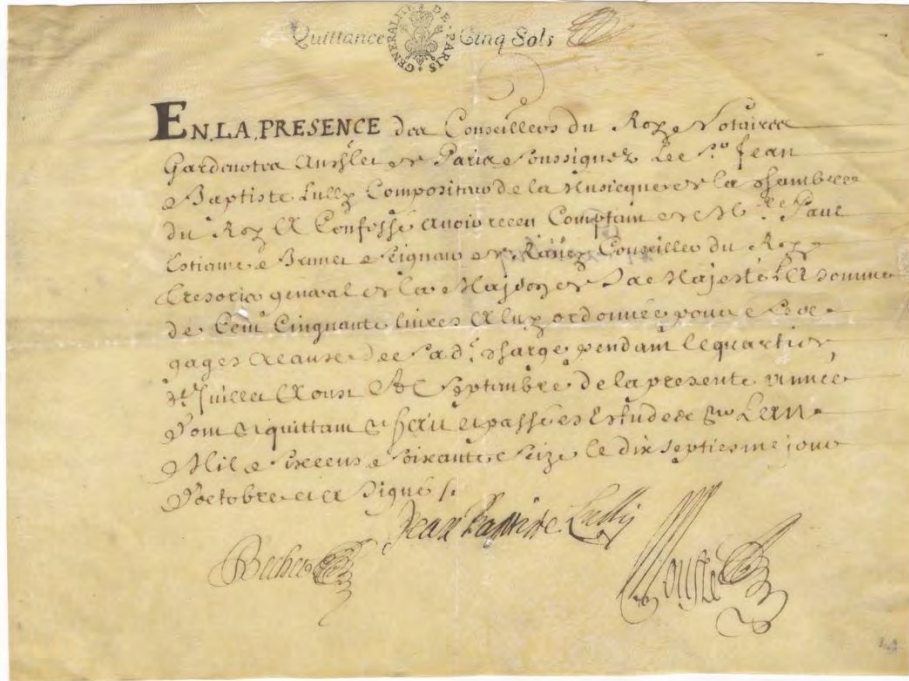 Quittance GENERALITE DE PARIS Cinq Sols
EN LA PRESENCE des Conseillers du Roy Notaires
Gardenottes au Chlet de Paris soussignez Le Sr. Jean
Baptiste Lully Compositeur de la Musicque de la Chambre
du Roy A Confessé avoir receu Comptant de Paul
Estienne Brunet seigneur de Conseiller du Roy
Tresorier general de la Maison de Sa Majesté LA somme
de Cent Cinquante livres A luy ordonnée pour ses
gages A cause de sad. charge pendant le quartier
de Juillet Aoust & Septembre de la presente année
Dont Quittant & faict et passé es Estudes L'an
Mil six cens soixante seize le dix septiesme jour
D'octobre et a signé /.
Jean Baptiste Lully
Mousle